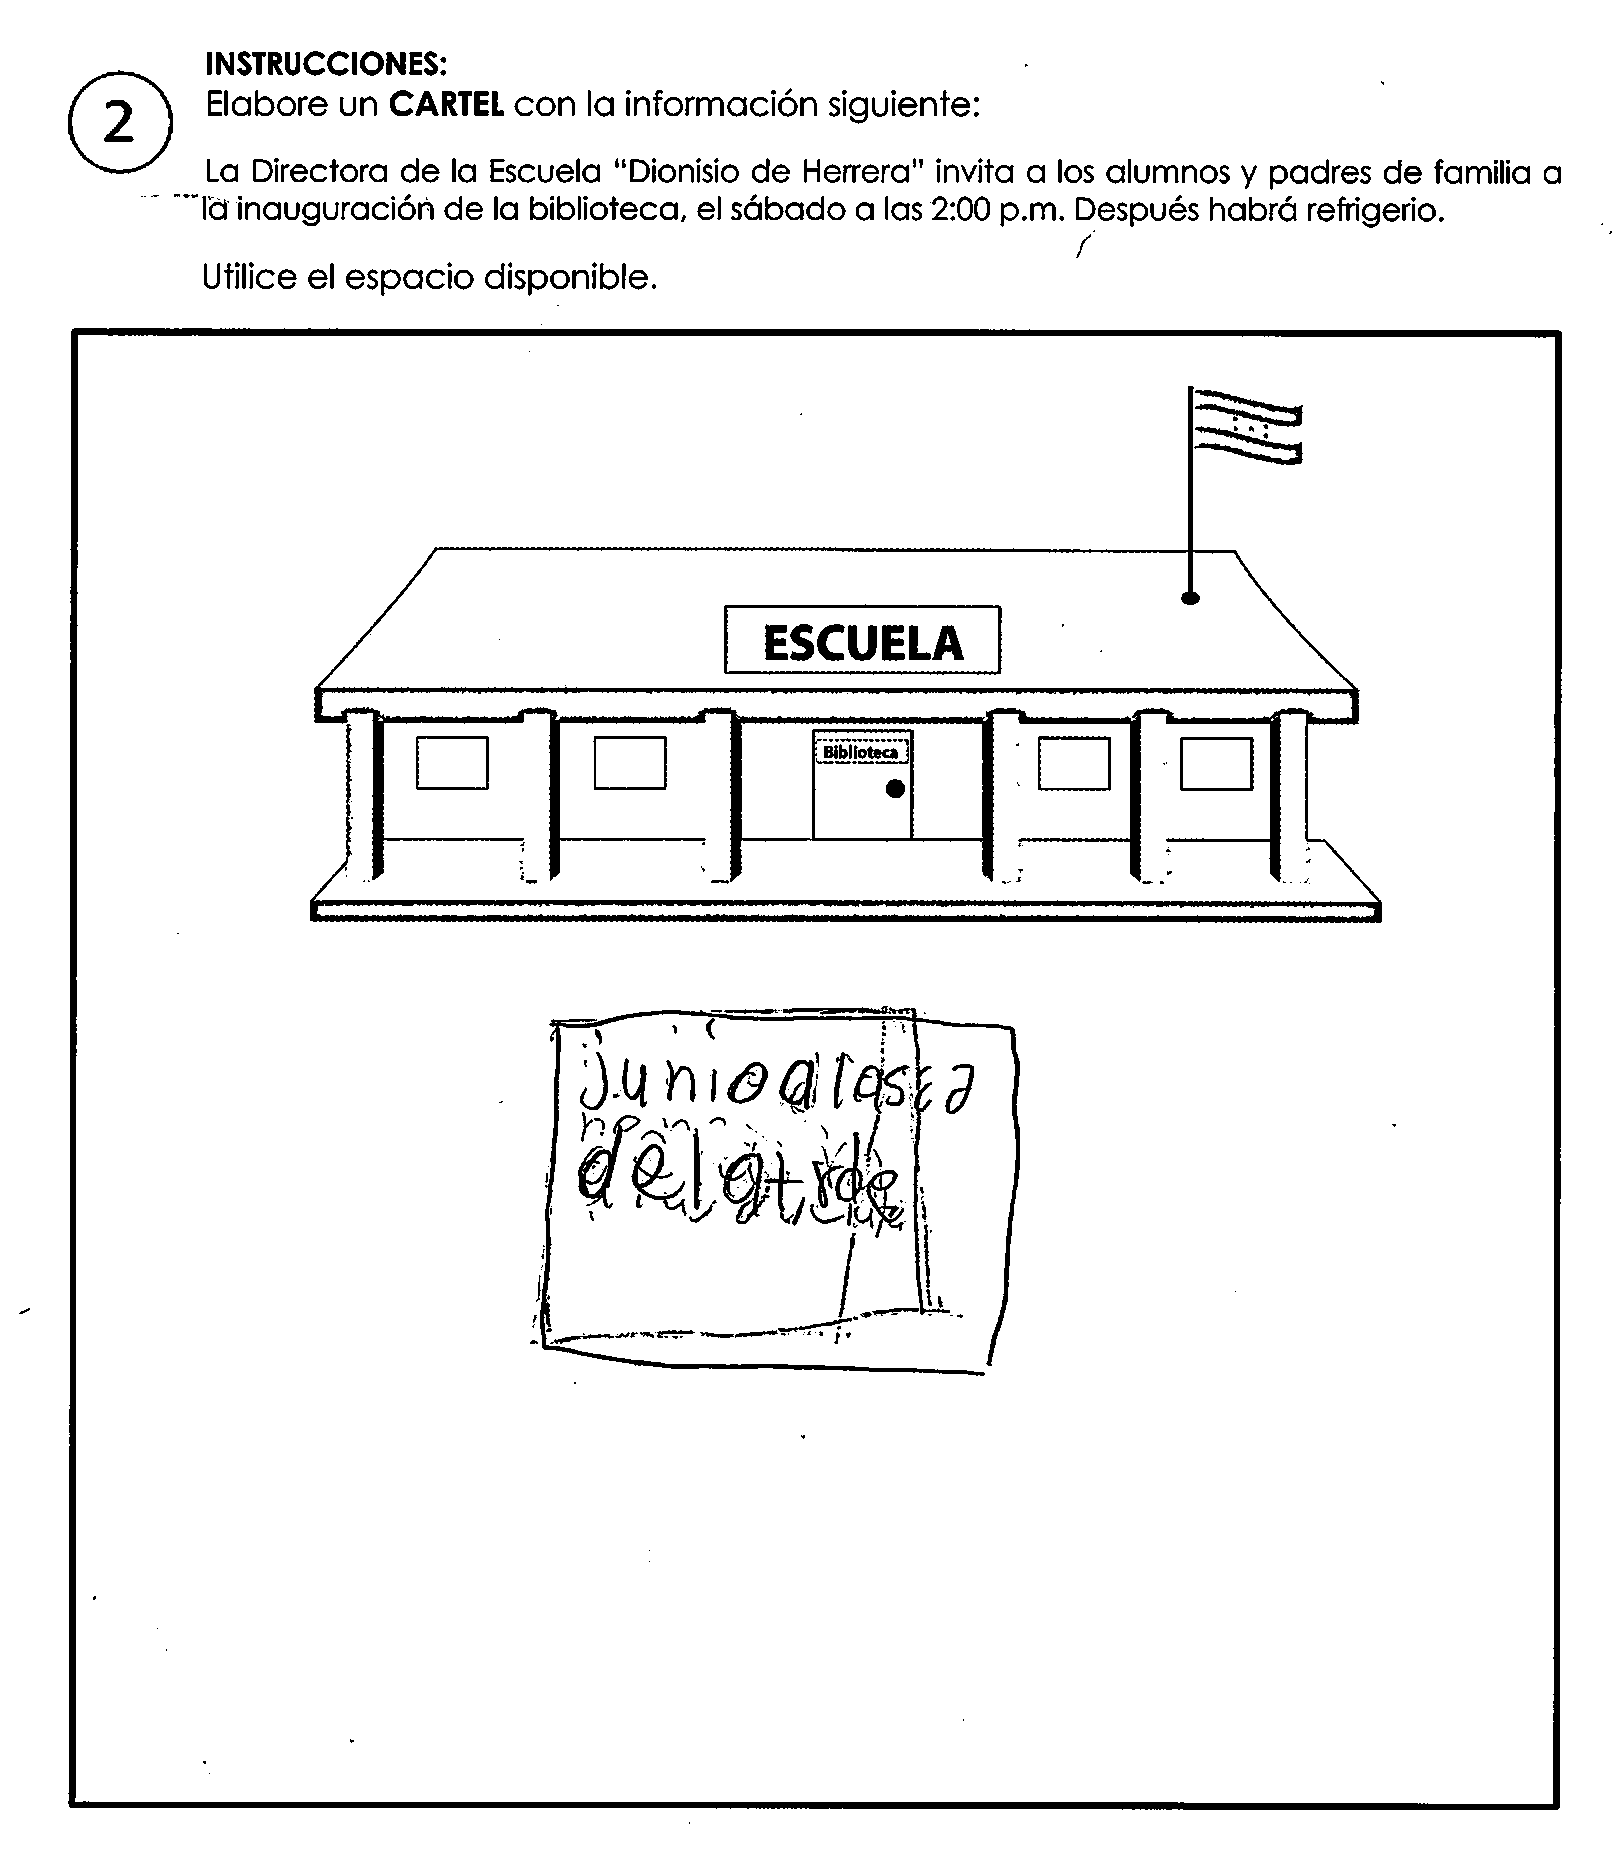 INSTRUCCIONES:
2
Elabore un CARTEL con la información siguiente:
La Directora de la Escuela "Dionisio de Herrera" invita a los alumnos y padres de familia a
la inauguración de la biblioteca, el sábado a las 2:00 p.m. Después habrá refrigerio.
Utilice el espacio disponible.
ESCUELA
Biblioteca
junio a las
de la trde